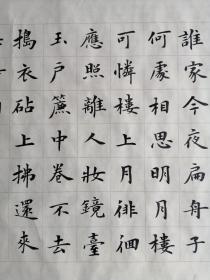 誰家今夜扁舟子
何處相思明月樓
可憐樓上月徘徊
應照離人妝鏡臺
玉戶簾中卷不去
搗衣砧上拂還來